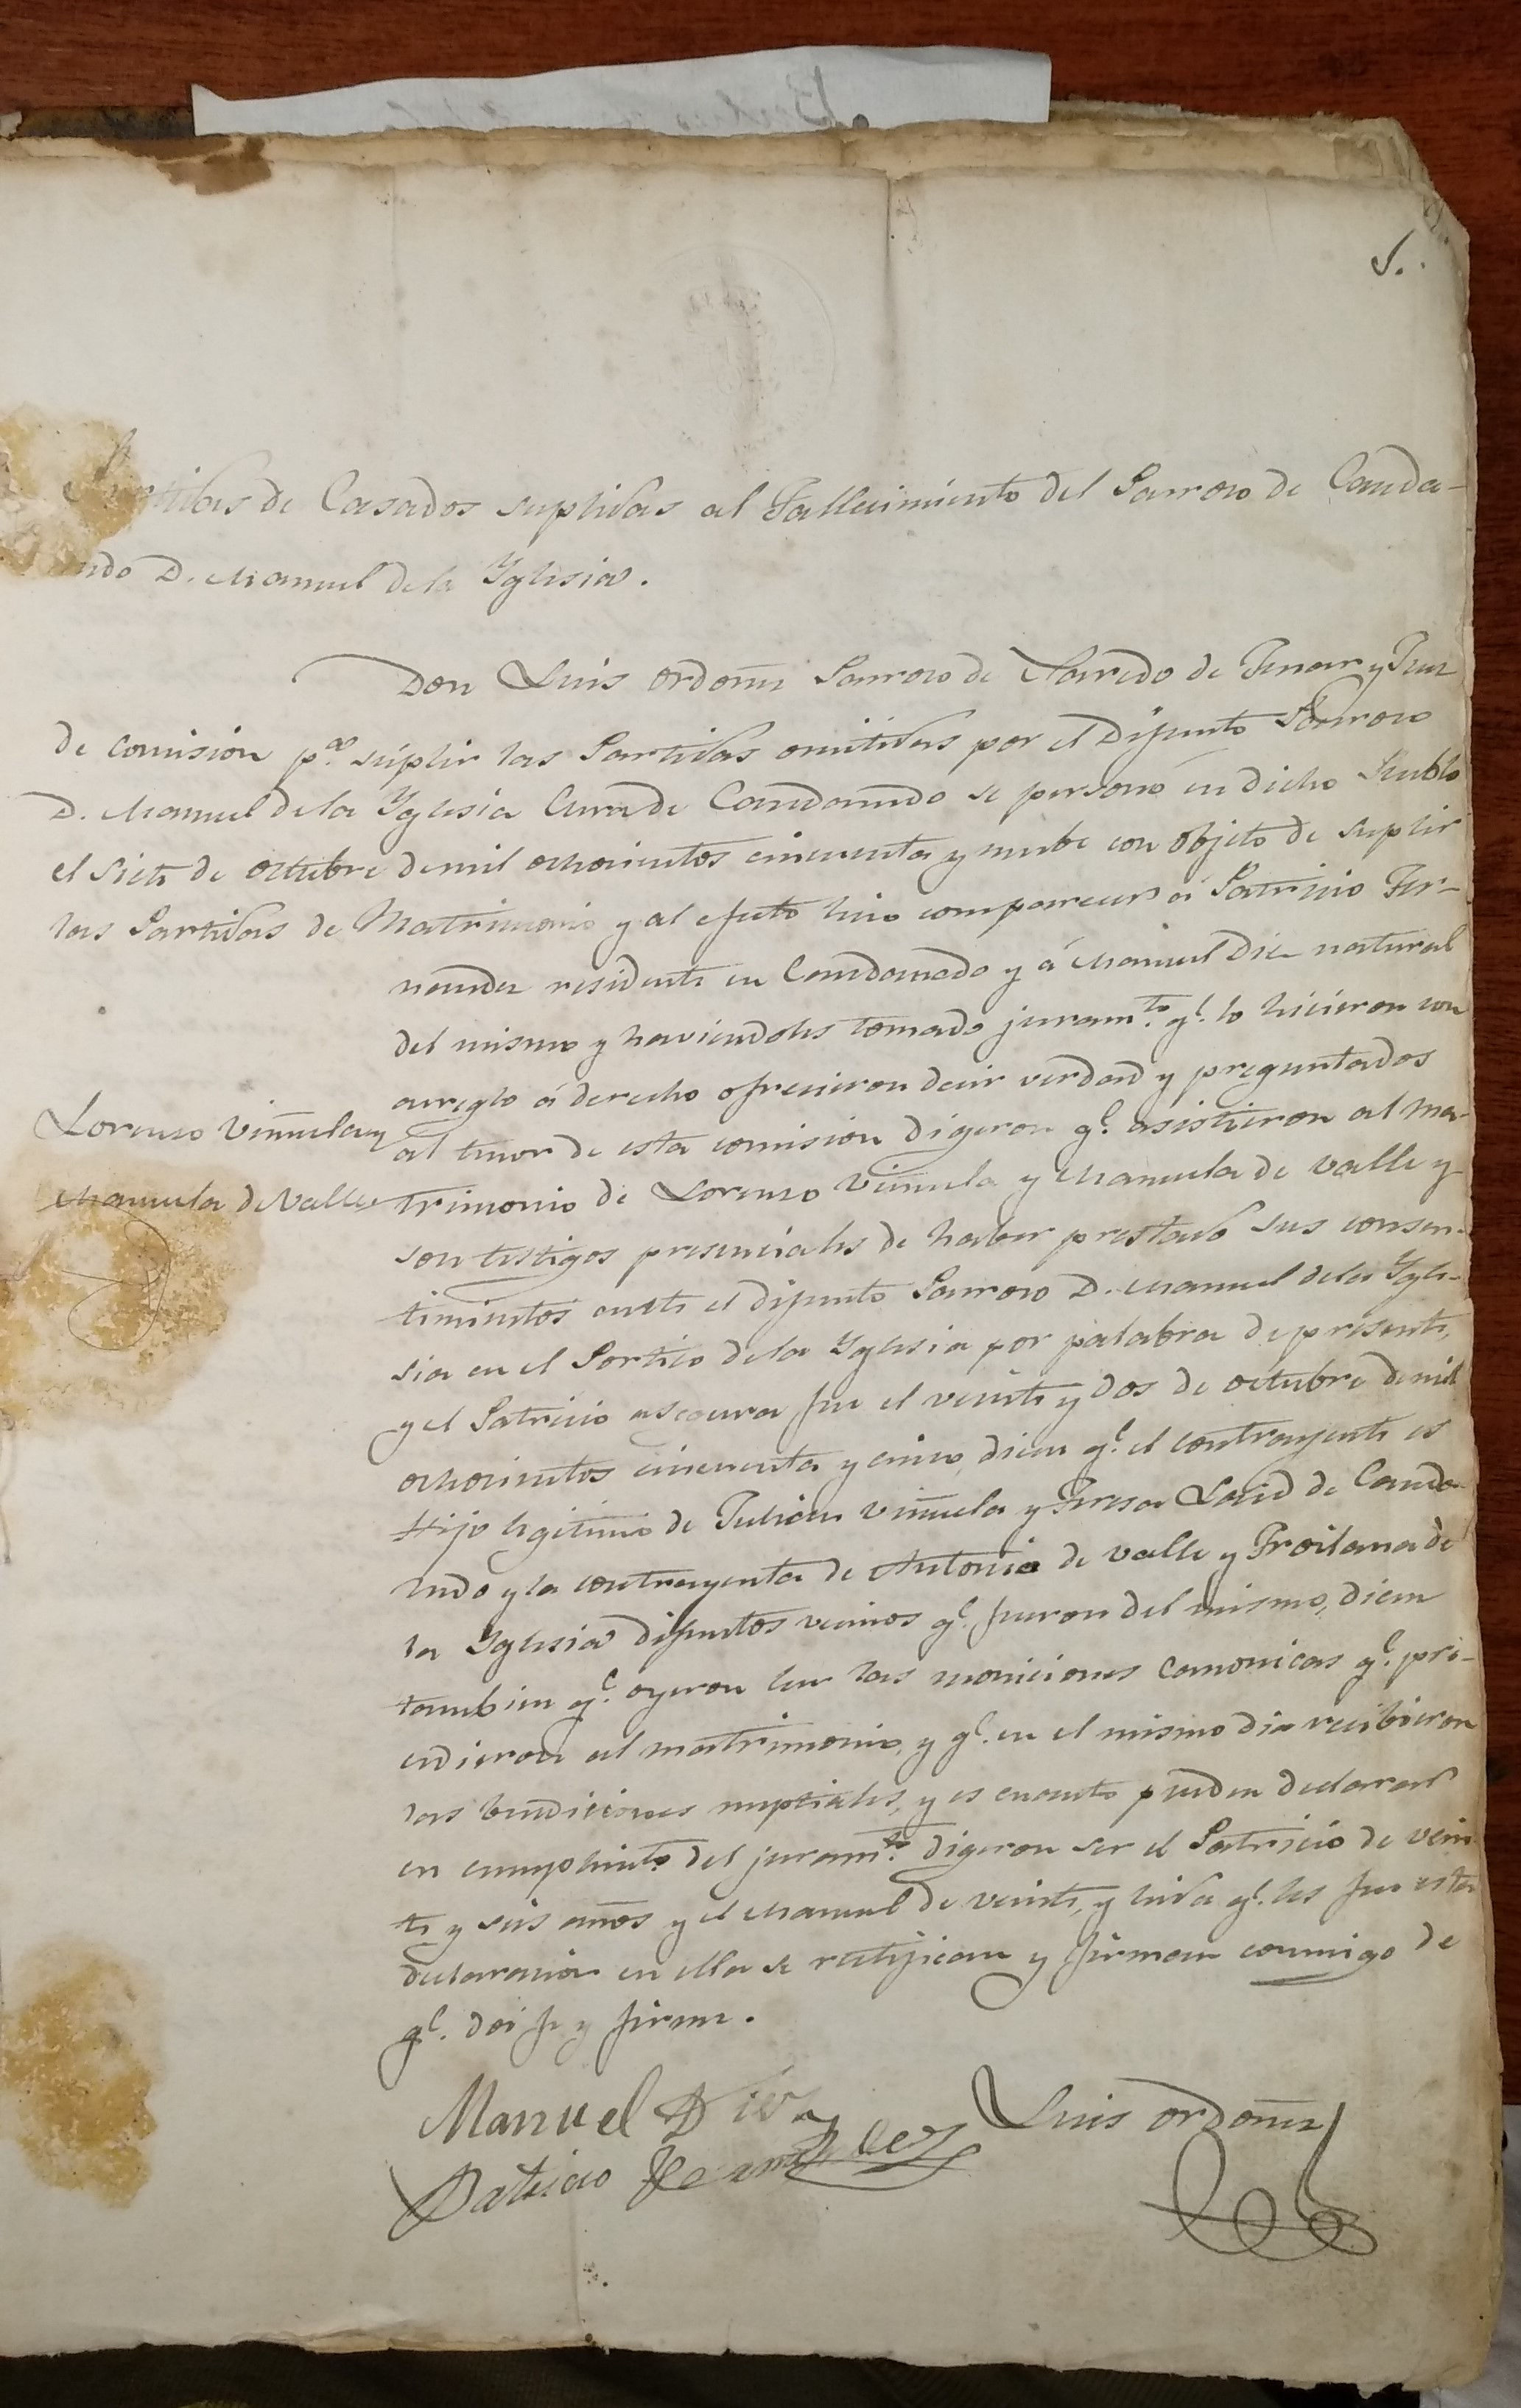 1.
Partidas de Casados suplidas al Fallecimiento del Parroco de Canda-
nedo D. Manuel de la Yglesia.
Don Luis Ordoñez Parroco de Naredo de Fenar y Juez
de comision p.ª suplir las Partidas omitidas por el Difunto Parroco
D. Manuel de la Yglesia Cura de Candanedo se personó en dicho Pueblo
el siete de octubre de mil ochocientos cincuenta y nuebe con objeto de suplir
las Partidas de Matrimonio y al efecto hizo comparecer á Patricio Fer-
nandez residente en Candanedo y á Manuel Diez natural
del mismo y haviendoles tomado juram.to q.e lo hicieron con
arreglo á derecho ofrecieron decir verdad y preguntados
Lorenzo Viñuela y
al tenor de esta comision digeron q.e asistieron al ma-
Manuela de Valle
trimonio de Lorenzo Viñuela y Manuela de Valle y
son testigos presenciales de haber prestado sus consen-
timientos ante el difunto Parroco D. Manuel de la Ygle-
sia en el Portico de la Yglesia por palabra de presente,
y el Patricio asegura fue el veinte y dos de octubre de mil
ochocientos cincuenta y cinco, dicen q.e el contrayente es
Hijo legitimo de Julian Viñuela y Teresa Laiz de Canda-
nedo y la contrayenta de Antonio de Valle y Froilana de
la Yglesia difuntos vecinos q.e fueron del mismo, dicen
tambien q.e oyeron leer las moniciones canonicas q.e pre-
cedieron al matrimonio, y q.e en el mismo dia recibieron
las bendiciones nuptiales, y es cuanto pueden declarar
en cumplim.to del juram.to digeron ser el Patricio de vein-
te y seis años y el Manuel de veinte, y leida q.e les fue esta
declaracion en ella se ratifican y firman conmigo de
q.e doi fe y firme.
Manuel Diez Luis Ordoñez
Patricio Fernandez